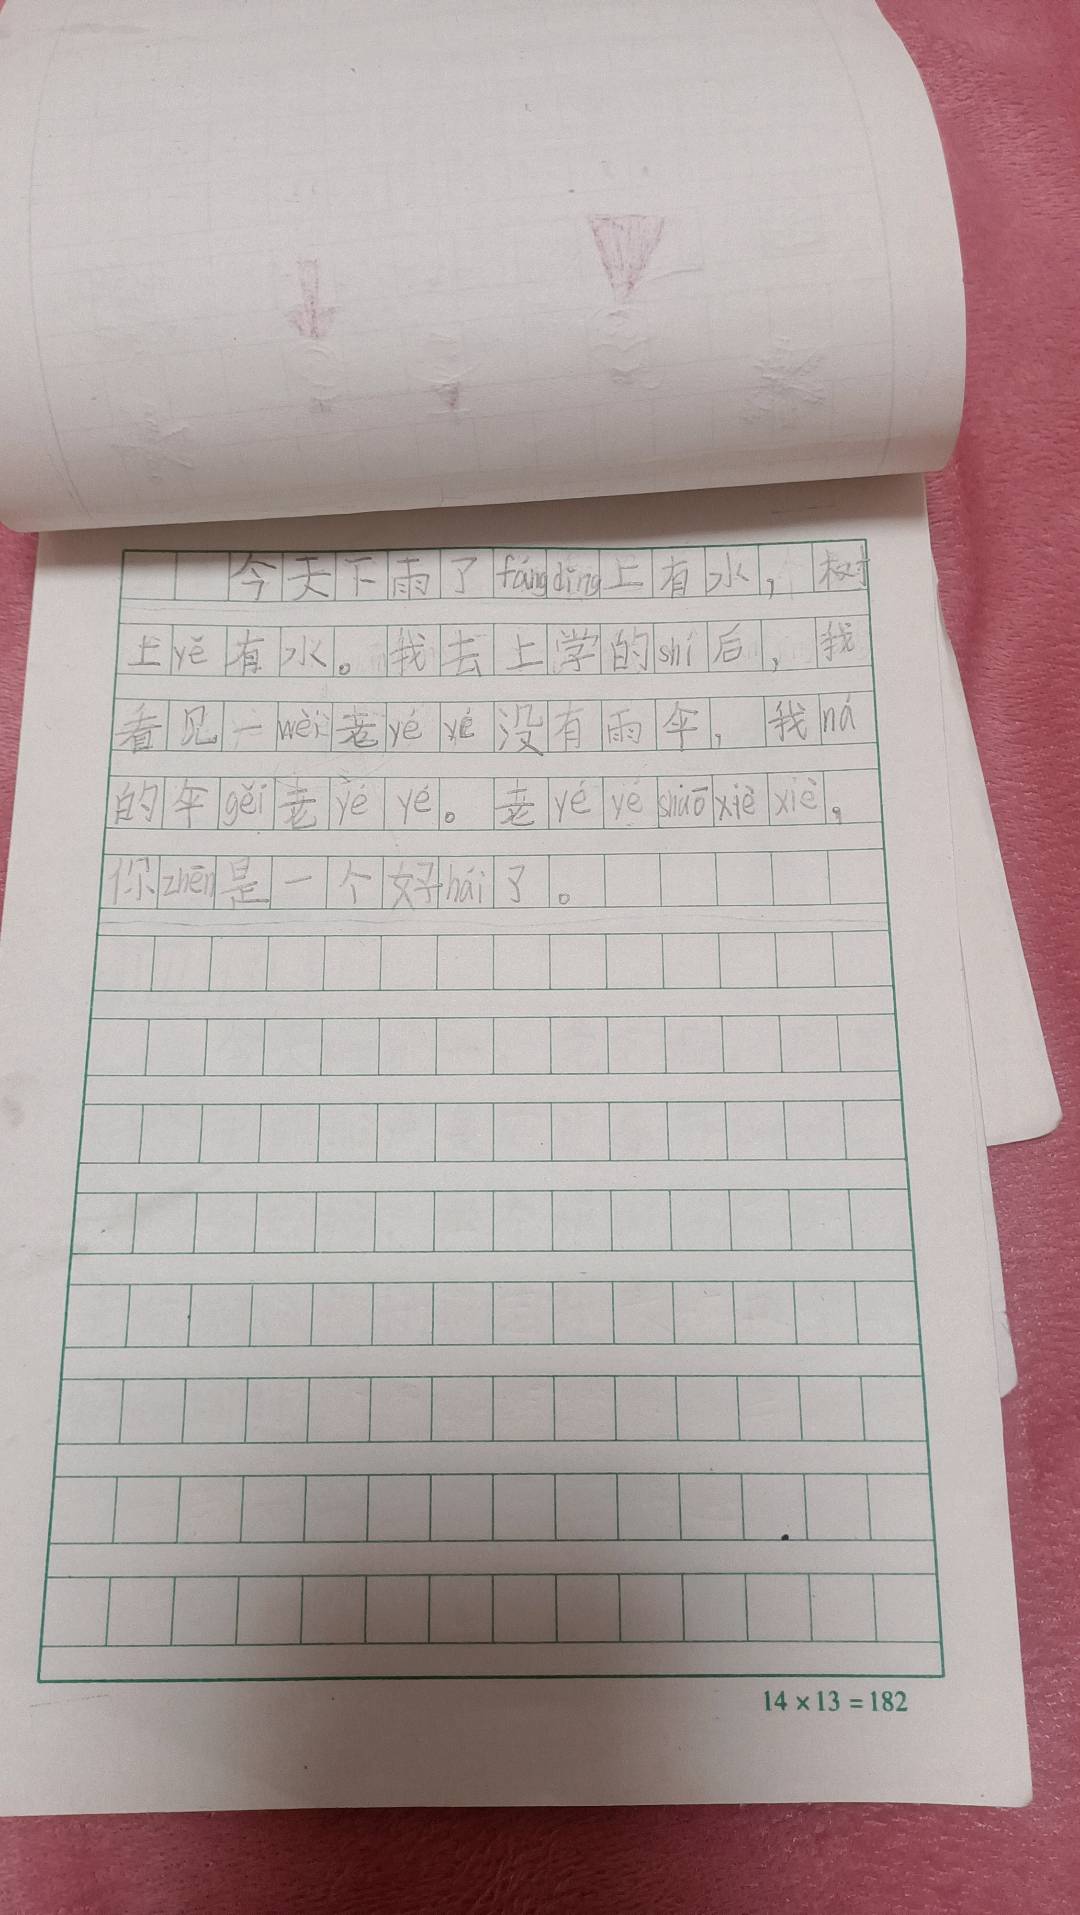 今天下雨了fángdǐng上有水，树
上yě有水。我去上学的shí后，我
看见一wèi老yé yé没有雨伞，我ná
的伞gěi老yé yé。老yé yé shuō xiè xiè，
你zhēn是一个好hái了。
14×13=182